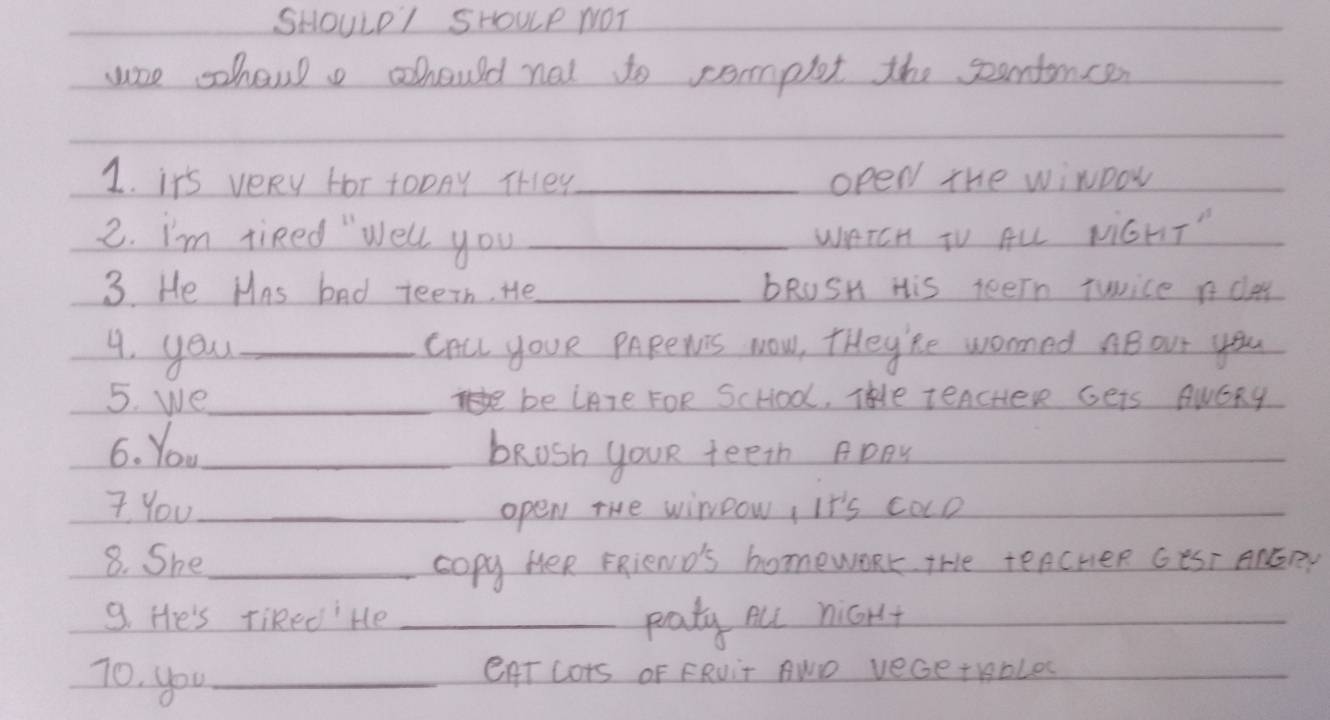 SHOULD / SHOULD NOT
use schaul e should not to complet the sentences
1. it's VERY HOT TODAY THEY ________ OPEN THE WINDOW
2. i'm tired "Well you ________ WATCH TV ALL NIGHT"
3. He HAS bAD teeth. He ________ bRUSH HiS teeth twice A day
4. you ________ CALL YOUR PARENTS NOW, THEy'Re worried ABOUt you
5. We ________ be LATE FOR SCHOOL. THe TEACHER GeTS ANGRY
6. You ________ bRUSh YOUR teeth A DAY
7 You ________ OPEN THE WINDOW, IT'S COLD
8. She ________ copy HER FRIEND'S homework. tHe tEACHER GEST ANGRY
9. He's TiRed 'He ________ paty ALL NiGHt
10. you ________ EAT LOTS OF FRUiT AND VEGEtAbles